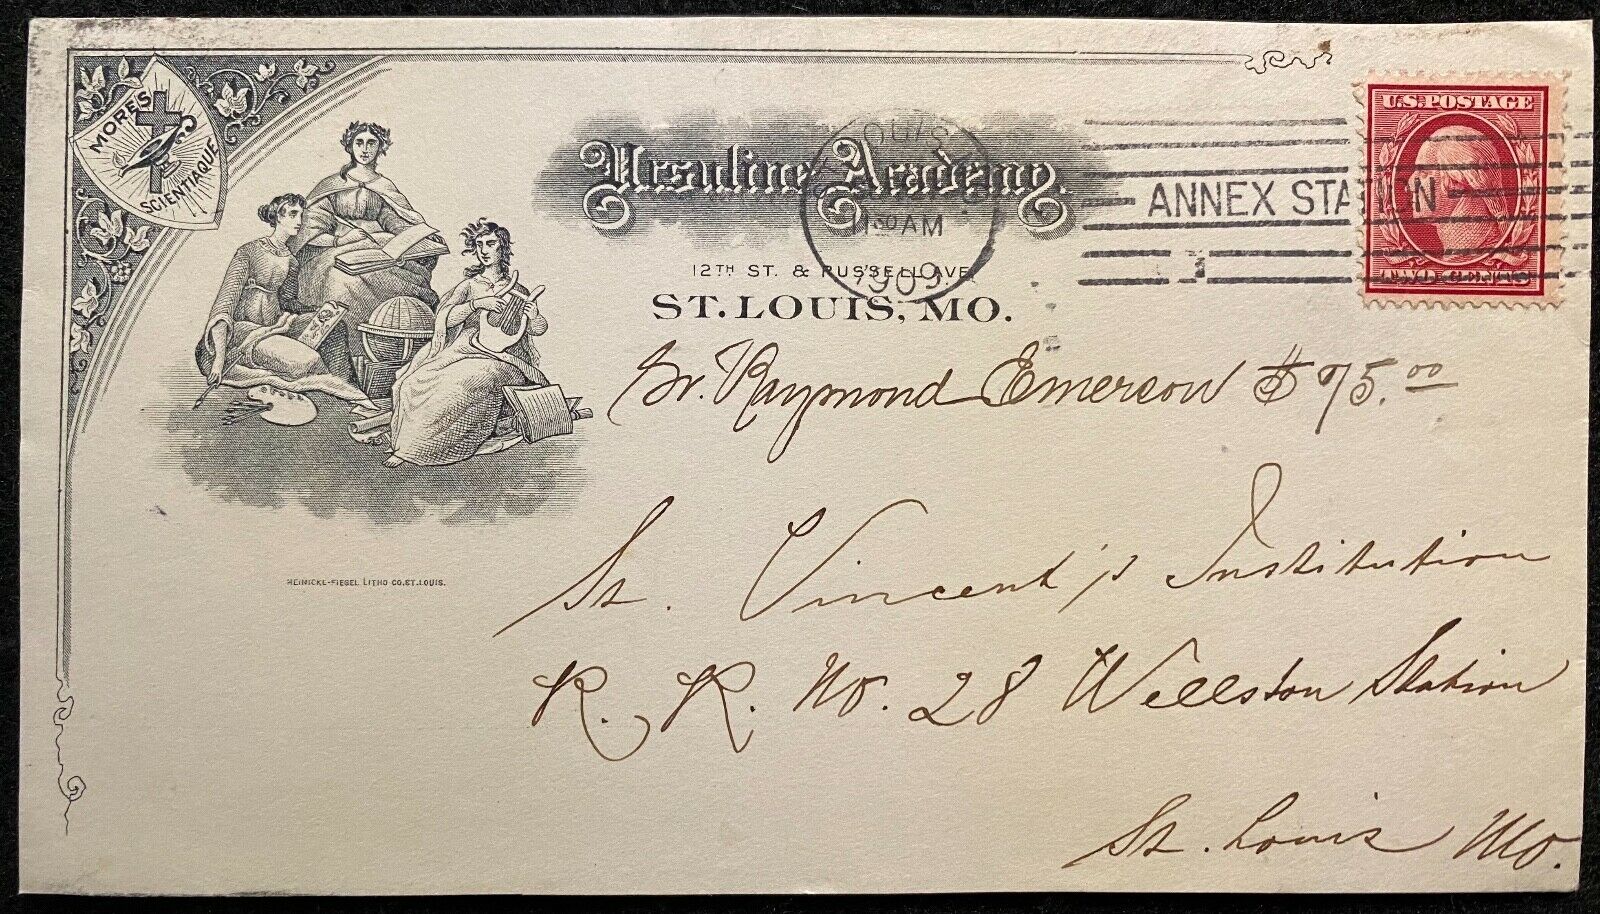 MORES
SCIENTIAQUE
Ursuline Academy.
12TH ST. & RUSSELL AVE.
ST. LOUIS, MO.
LOUIS
1130 AM
1909
ANNEX STATION
1
U.S. POSTAGE
Sr. Raymond Emerson $75.00
St. Vincent's Institution
R. R. No. 28 Wellston Station
St. Louis Mo.
HEINICKE-FIESEL LITHO CO. ST. LOUIS.